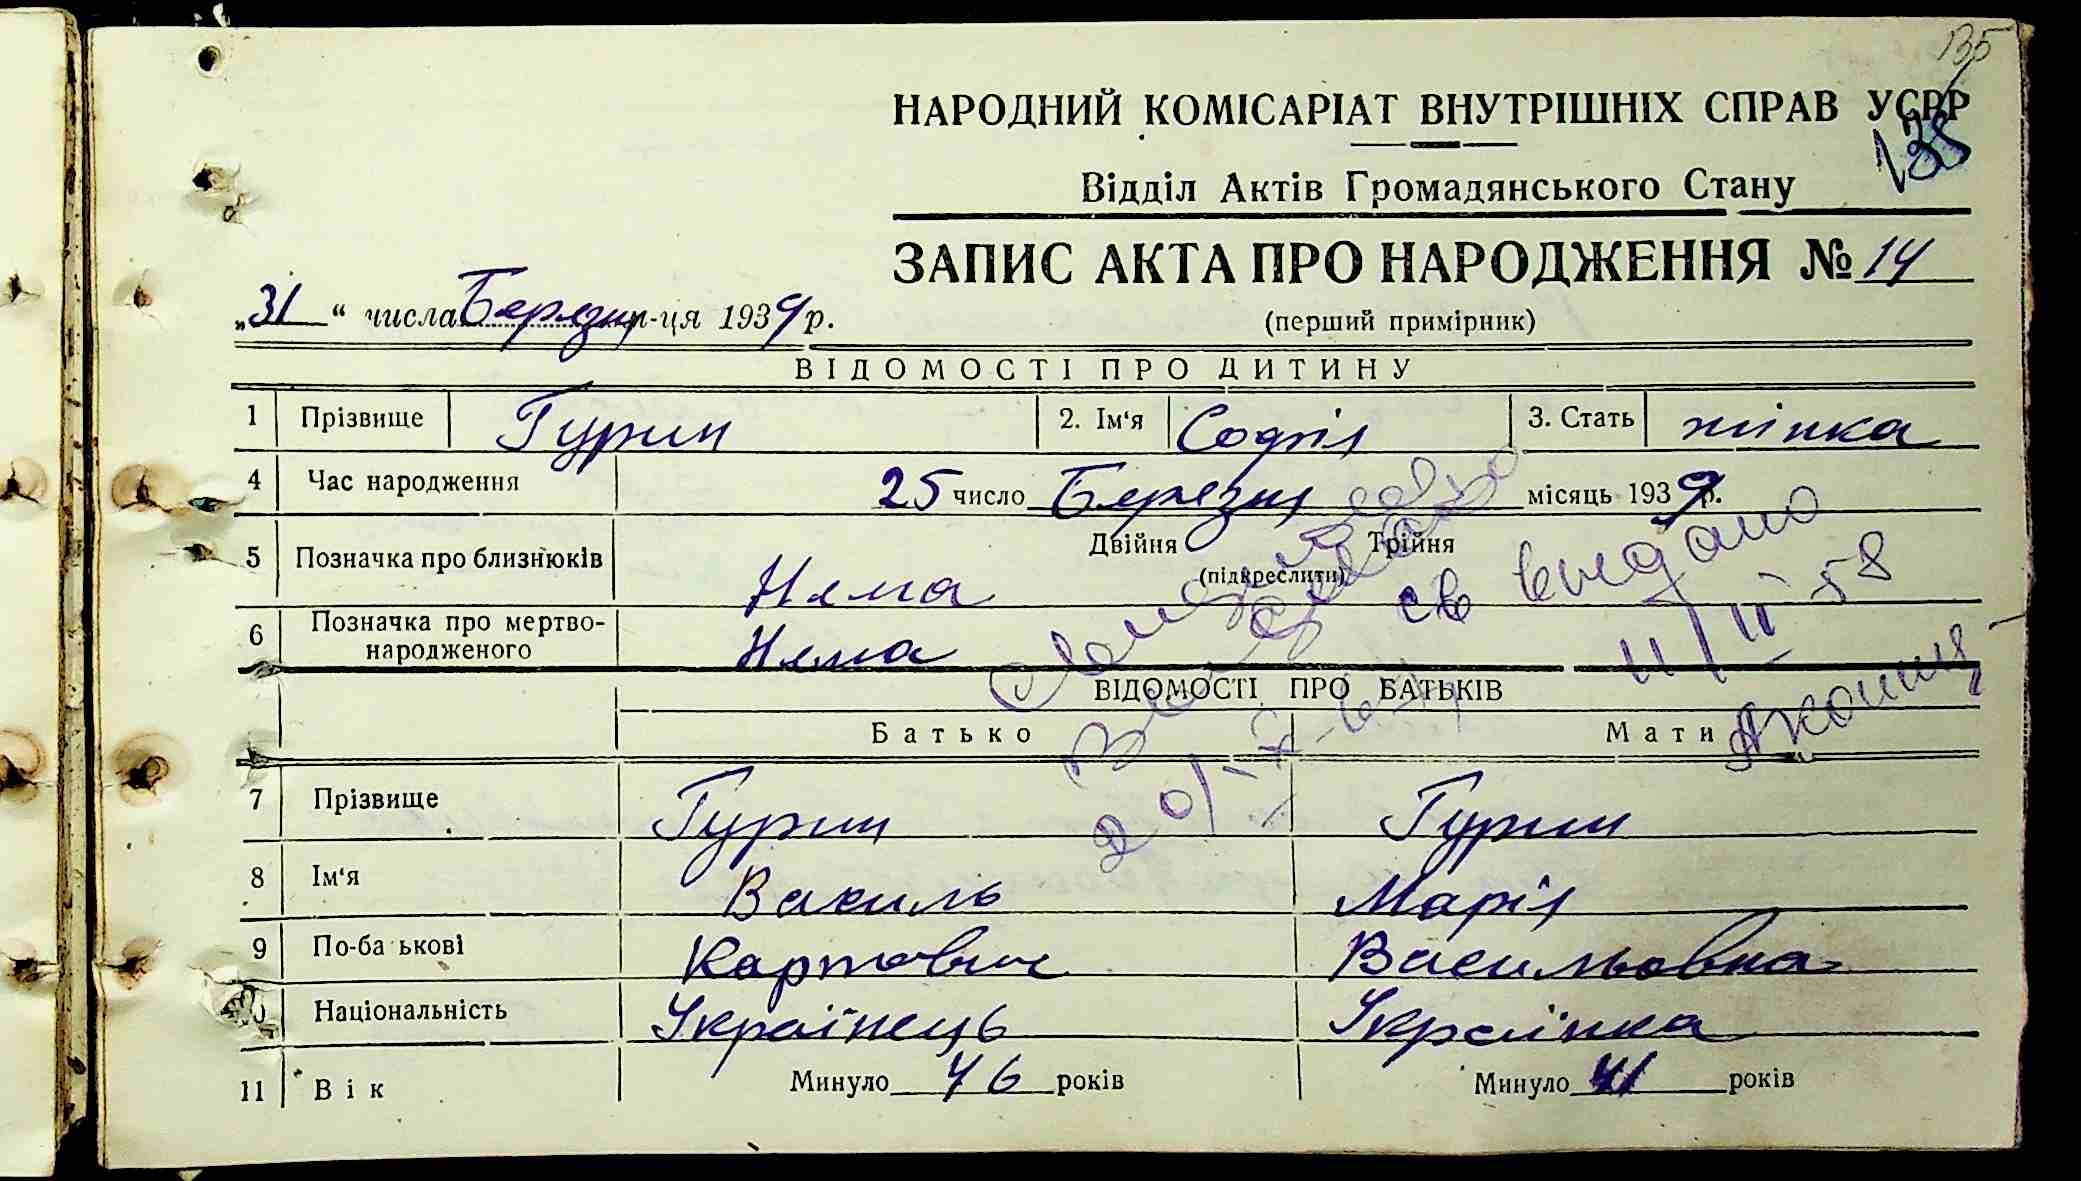 135
НАРОДНИЙ КОМІСАРІАТ ВНУТРІШНІХ СПРАВ УСРР
135
Відділ Актів Громадянського Стану
ЗАПИС АКТА ПРО НАРОДЖЕННЯ № 14
„31“ числа Березня-ця 1939 р.
(перший примірник)
ВІДОМОСТІ ПРО ДИТИНУ
1 Прізвище Гурин 2. Ім'я Софія 3. Стать жінка
4 Час народження 25 число Березня місяць 1939 р.
5 Позначка про близнюків Двійня Трійня
(підкреслити)
Нема
св видано
11/II 58
6 Позначка про мертвонародженого Нема
ВІДОМОСТІ ПРО БАТЬКІВ
Батько Мати
7 Прізвище Гурин Гурин
8 Ім'я Василь Марія
9 По-ба ькові Карпович Васильовна
10 Національність Українець Українка
11 Вік Минуло 46 років Минуло 41 років